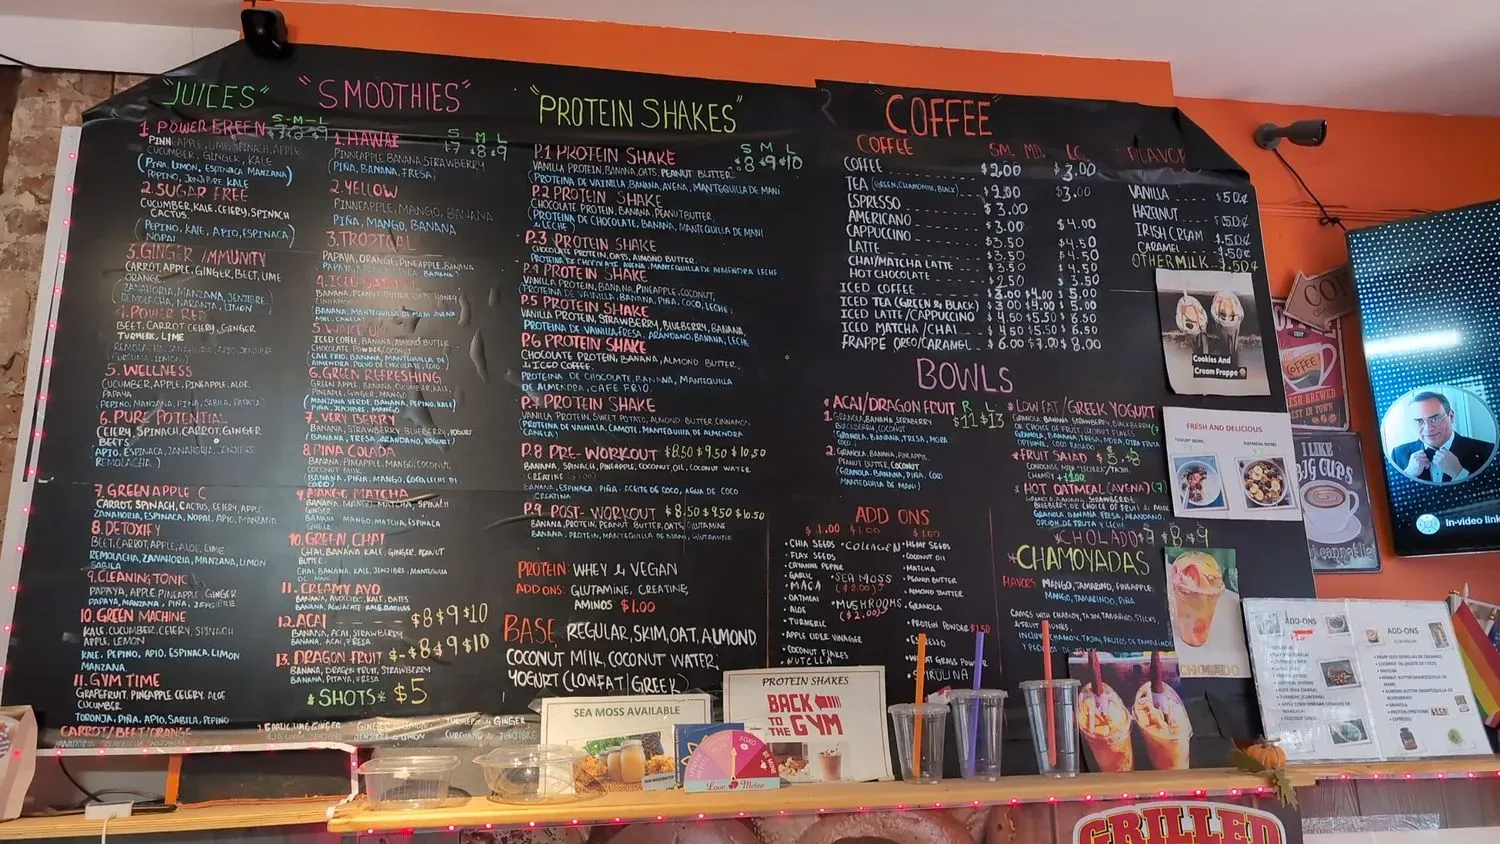 "JUICES"
S - M - L
1. POWER GREEN
PINNEAPPLE, LIME, SPINACH, APPLE
CUCUMBER, GINGER, KALE
(PIÑA, LIMON, ESPINACA, MANZANA
PEPINO, JENJIBRE, KALE)
2. SUGAR FREE
CUCUMBER, KALE, CELERY, SPINACH
CACTUS.
(PEPINO, KALE, APIO, ESPINACA
NOPAL)
3. GINGER IMMUNITY
CARROT, APPLE, GINGER, BEET, LIME
ORANGE
(ZANAHORIA, MANZANA, JENJIBRE,
REMOLACHA, NARANJA, LIMON)
4. POWER RED
BEET, CARROT CELERY, GINGER
TURMERIK, LIME
REMOLACHA, ZANAHORIA, APIO, JENJIBRE
(CURCUMA, LIMON)
5. WELLNESS
CUCUMBER, APPLE, PINEAPPLE, ALOE,
PAPAYA
(PEPINO, MANZANA, PIÑA, SABILA, PAPAYA)
6. PURE POTENTIAL
CELERY, SPINACH, CARROT, GINGER
BEETS
(APIO, ESPINACA, ZANAHORIA, JENJIBRE
REMOLACHA)
7. GREEN APPLE C
CARROT, SPINACH, CACTUS, CELERY, APPLE
ZANAHORIA, ESPINACA, NOPAL, APIO, MANZANA
8. DETOXIFY
BEET, CARROT, APPLE, ALOE, LIME
REMOLACHA, ZANAHORIA, MANZANA, LIMON
SABILA
9. CLEANING TONIC
PAPAYA, APPLE, PINEAPPLE, GINGER
PAPAYA, MANZANA, PIÑA, JENGIBRE
10. GREEN MACHINE
KALE, CUCUMBER, CELERY, SPINACH
APPLE, LEMON
KALE, PEPINO, APIO, ESPINACA, LIMON
MANZANA.
11. GYM TIME
GRAPEFRUIT, PINEAPPLE, CELERY, ALOE
CUCUMBER
TORONJA, PIÑA, APIO, SABILA, PEPINO
CARROT/BEET/ORANGE
"SMOOTHIES"
S M L
$7 $8 $9
1. HAWAI
PINNEAPPLE BANANA STRAWBERRY
(PIÑA, BANANA, FRESA)
2. YELLOW
PINNEAPPLE, MANGO, BANANA
PIÑA, MANGO, BANANA
3. TROPICAL
PAPAYA, ORANGE, PINEAPPLE, BANANA
5. WAKE UP
ICED COFFEE, BANANA, ALMOND BUTTER,
CHOCOLATE POWDER, COCONUT
(CAFE FRIO, BANANA, MANTEQUILLA DE
ALMENDRA, POLVO DE CHOCOLATE, COCO)
6. GREEN REFRESHING
GREEN APPLE, BANANA, CUCUMBER, KALE,
PINEAPPLE, GINGER, MANGO
(MANZANA VERDE, BANANA, PEPINO, KALE
PIÑA, JENJIBRE, MANGO)
7. VERY BERRY
BANANA, STRAWBERRY, BLUEBERRY, YOGURT
(BANANA, FRESA, ARANDANO, YOGURT)
8. PINA COLADA
BANANA, PINEAPPLE, MANGO, COCONUT,
COCONUT MILK.
(BANANA, PIÑA, MANGO, COCO, LECHE DE
COCO)
9. MANGO MATCHA
BANANA, MANGO, MATCHA, SPINACH
GINGER
BANANA MANGO, MATCHA, ESPINACA
GINGER
10. GREEN CHAI
CHAI, BANANA KALE, GINGER, PEANUT
BUTTER
CHAI, BANANA, KALE, JENJIBRE, MANTEQUILLA
DE MANI
11. CREAMY AVO
BANANA, AVOCADO, KALE, DATES
BANANA, AGUACATE KALE, DATILES
12. ACAI $8 $9 $10
BANANA, ACAI, STRAWBERRY
BANANA, ACAI, FRESA
13. DRAGON FRUIT $-$8 $9 $10
BANANA, DRAGON FRUIT, STRAWBERRY
BANANA, PITAYA, FRESA
*SHOTS* $5
GINGER LEMON
TURMERIC & GINGER
JENJIBRE & LIMON
CURCUMA & JENJIBRE
"PROTEIN SHAKES"
S M L
$8 $9 $10
P.1 PROTEIN SHAKE
VANILLA PROTEIN, BANANA, OATS, PEANUT BUTTER
(PROTEINA DE VAINILLA, BANANA, AVENA, MANTEQUILLA DE MANI
P.2 PROTEIN SHAKE
CHOCOLATE PROTEIN, BANANA, PEANUT BUTTER,
(PROTEINA DE CHOCOLATE, BANANA, MANTEQUILLA DE MANI
& LECHE)
P.3 PROTEIN SHAKE
CHOCOLATE PROTEIN, OATS, ALMOND BUTTER.
PROTEINA DE CHOCOLATE, AVENA, MANTEQUILLA DE ALMENDRA LECHE
P.4 PROTEIN SHAKE
VANILLA PROTEIN, BANANA, PINEAPPLE, COCONUT,
(PROTEINA DE VAINILLA, BANANA, PIÑA, COCO, LECHE)
P.5 PROTEIN SHAKE
VANILLA PROTEIN, STRAWBERRY, BLUEBERRY, BANANA,
PROTEINA DE VAINILLA, FRESA, ARANDANO, BANANA, LECHE
P.6 PROTEIN SHAKE
CHOCOLATE PROTEIN, BANANA, ALMOND BUTTER,
& ICED COFFEE.
PROTEINA DE CHOCOLATE, BANANA, MANTEQUILLA
DE ALMENDRA, CAFE FRIO
P.7 PROTEIN SHAKE
VANILLA PROTEIN, SWEET POTATO, ALMOND BUTTER CINNAMON
PROTEINA DE VAINILLA, CAMOTE, MANTEQUILLA DE ALMENDRA
CANELA)
P.8 PRE-WORKOUT $8.50 $9.50 $10.50
BANANA, SPINACH, PINEAPPLE, COCONUT OIL, COCONUT WATER.
BANANA, ESPINACA, PIÑA, ACEITE DE COCO, AGUA DE COCO
CREATINA
P.9 POST-WORKOUT $8.50 $9.50 $10.50
BANANA, PROTEIN, PEANUT BUTTER, OATS, GLUTAMINE
BANANA, PROTEIN, MANTEQUILLA DE MANI, GLUTAMINA
PROTEIN: WHEY & VEGAN
ADD ONS: GLUTAMINE, CREATINE,
AMINOS $1.00
BASE: REGULAR, SKIM, OAT, ALMOND
COCONUT MILK, COCONUT WATER,
YOGURT (LOWFAT/GREEK)
"COFFEE"
COFFEE SM. MD. LG.
COFFEE $2.00 $3.00
TEA (GREEN, CHAMOMILE, BLACK) $2.00 $3.00
ESPRESSO $3.00
AMERICANO $3.00 $4.00
CAPPUCCINO $3.50 $4.50
LATTE $3.50 $4.50
CHAI/MATCHA LATTE $3.50 $4.50
HOT CHOCOLATE $2.50 $3.50
ICED COFFEE $3.00 $4.00 $5.00
ICED TEA (GREEN & BLACK) $3.00 $4.00 $5.00
ICED LATTE/CAPPUCCINO $4.50 $5.50 $6.50
ICED MATCHA/CHAI $4.50 $5.50 $6.50
FRAPPE OREO/CARAMEL $6.00 $7.00 $8.00
FLAVOR
VANILLA $.50¢
HAZELNUT $.50¢
IRISH CREAM $.50¢
CARAMEL $.50¢
OTHER MILK $.50¢
BOWLS
*ACAI/DRAGON FRUIT R L
$11 $13
1. GRANOLA, BANANA, STRABERRY
BLACKBERRY, COCONUT
(GRANOLA, BANANA, FRESA, MORA
COCO)
2. GRANOLA, BANANA, PINEAPPLE,
PEANUT BUTTER, COCONUT
(GRANOLA, BANANA, PIÑA, COCO
MANTEQUILLA DE MANI)
*LOW FAT/GREEK YOGURT
GRANOLA, BANANA, STRAWBERRY, BLACKBERRY
OR CHOICE OF FRUIT, COCONUT FLAKES
GRANOLA, BANANA, FRESA, MORA, OTRA FRUTA
OPTIONAL, COCO RALLADO
*FRUIT SALAD $5 $8
*HOT OATMEAL (AVENA) (7)
GRANOLA, BANANA, STRAWBERRY,
BLUEBERRY, OR CHOICE OF FRUIT & MILK
GRANOLA, BANANA, FRESA, ARANDANO,
OPCION DE FRUTA Y LECHE
*CHOLADO $7 $8 $9
*CHAMOYADAS
FLAVORS MANGO, TAMARINDO, PINEAPPLE
MANGO, TAMARINDO, PIÑA
COMES WITH CHAMOY, TAJIN, TAMARIND STICKS,
& FRUIT CHUNKS
INCLUYE CHAMOY, TAJIN, PALILLOS DE TAMARINDO
ADD ONS
$1.00 $1.00 $1.00
• CHIA SEEDS
• FLAX SEEDS
• CAYENNE PEPPER
• GARLIC
• MACA
• OATMEAL
• ALOE
• TURMERIC
• APPLE CIDER VINAGER
• COCONUT FLAKES
• NUTELLA
• COLLAGEN
• SEA MOSS
($2.00)
• MUSHROOMS
($2.00)
• HEMP SEEDS
• COCONUT OIL
• MATCHA
• PEANUT BUTTER
• ALMOND BUTTER
• GRANOLA
• PROTEIN POWDER $1.50
• ESPRESSO
• WHEAT GRASS POWDER
• SPIRULINA
Cookies And
Cream Frappe
FRESH AND DELICIOUS
YOGURT BOWL
OATMEAL BOWL
COFFEE
FRESH BREWED
BEST IN TOWN
I LIKE
BIG CUPS
In-video link
SEA MOSS AVAILABLE
PROTEIN SHAKES
BACK
TO THE
GYM
XOXO
Love Meter
CHOLADO
ADD-ONS
ADD-ONS
GRILLED